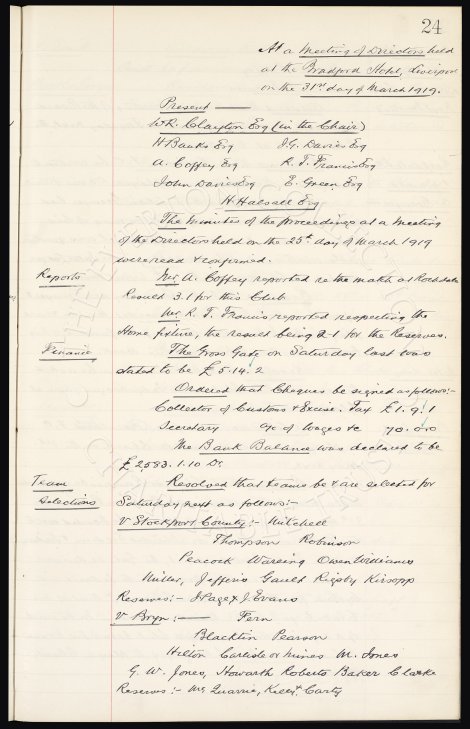 24
At a Meeting of Directors held
at the Bradford Hotel, Liverpool
on the 31st day of March 1919.
Present
W.R. Clayton Esq (in the Chair)
H. Banks Esq J.G. Davies Esq
A. Coffey Esq R. T. Francis Esq
John Davies Esq E. Green Esq
H. Halsall Esq
The Minutes of the proceedings at a Meeting
of the Directors held on the 25th day of March 1919
were read & confirmed.
Reports Mr. A. Coffey reported re the match at Rochdale
Result 3.1 for this Club
Mr. R. T. Francis reported respecting the
Home fixture, the result being 2-1 for the Reserves.
Finance The Gross Gate on Saturday last was
stated to be £5.14.2
Ordered that Cheques be signed as follows:-
Collector of Customs & Excise. Tax £1.9.1
Secretary a/c of Wages &c 70.0.0
The Bank Balance was declared to be
£2,583.1.10 Dr.
Team Resolved that teams be & are selected for
Selections Saturday next as follows:-
V Stockport County:- Mitchell
Thompson Robinson
Peacock Wareing Owen Williams
Miller, Jefferis Gault Rigsby Kirsopp
Reserves:- J Page & J. Evans
V Bryn:- Fern
Blacktin Pearson
Hilton Carlisle or Mines M. Jones
G. W. Jones, Howarth Roberts Baker Clarke
Reserves:- Mc Quarrie, Kelly, Carty